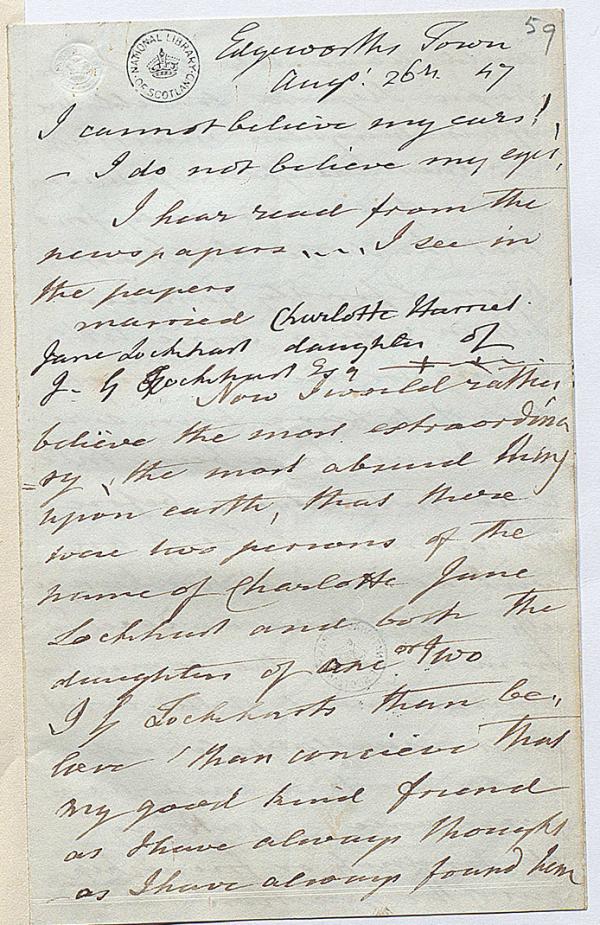 59
NATIONAL LIBRARY OF SCOTLAND
Edgeworths Town
Augt. 26th 47
I cannot believe my ears!
– I do not believe my eyes!
I hear read from the
newspapers ... I see in
the papers
married Charlotte Harriet
Jane Lockhart daughter of
J. G Lockhart Esqr
Now I would rather
believe the most extraordina
=ry, the most absurd thing
upon earth, that there
were two persons of the
name of Charlotte Jane
Lockhart and both the
daughters of one or two
J G Lockharts than be,,
lieve than concieve that
my good kind friend
as I have always thought
as I have always found him